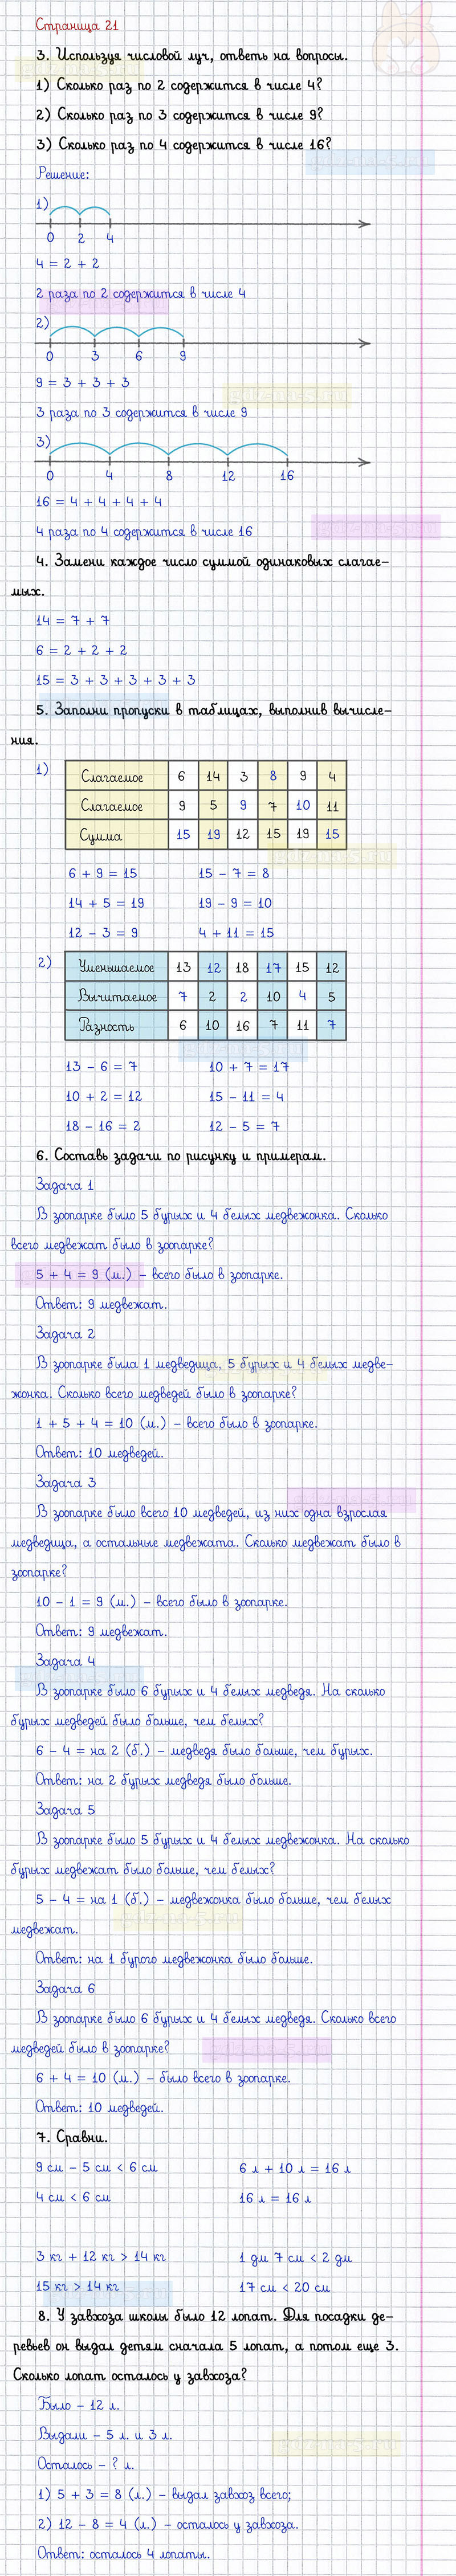 Страница 21
3. Используя числовой луч, ответь на вопросы.
1) Сколько раз по 2 содержится в числе 4?
2) Сколько раз по 3 содержится в числе 9?
3) Сколько раз по 4 содержится в числе 16?
Решение:
1)
0 2 4
4 = 2 + 2
2 раза по 2 содержится в числе 4
2)
0 3 6 9
9 = 3 + 3 + 3
3 раза по 3 содержится в числе 9
3)
0 4 8 12 16
16 = 4 + 4 + 4 + 4
4 раза по 4 содержится в числе 16
4. Замени каждое число суммой одинаковых слагае-
мых.
14 = 7 + 7
6 = 2 + 2 + 2
15 = 3 + 3 + 3 + 3 + 3
5. Заполни пропуски в таблицах, выполнив вычисле-
ния.
1) Слагаемое 6 14 3 8 9 4
Слагаемое 9 5 9 7 10 11
Сумма 15 19 12 15 19 15
6 + 9 = 15 15 - 7 = 8
14 + 5 = 19 19 - 9 = 10
12 - 3 = 9 4 + 11 = 15
2) Уменьшаемое 13 12 18 17 15 12
Вычитаемое 7 2 2 10 4 5
Разность 6 10 16 7 11 7
13 - 6 = 7 10 + 7 = 17
10 + 2 = 12 15 - 11 = 4
18 - 16 = 2 12 - 5 = 7
6. Составь задачи по рисунку и примерам.
Задача 1
В зоопарке было 5 бурых и 4 белых медвежонка. Сколько
всего медвежат было в зоопарке?
5 + 4 = 9 (м.) - всего было в зоопарке.
Ответ: 9 медвежат.
Задача 2
В зоопарке была 1 медведица, 5 бурых и 4 белых медве-
жонка. Сколько всего медведей было в зоопарке?
1 + 5 + 4 = 10 (м.) - всего было в зоопарке.
Ответ: 10 медведей.
Задача 3
В зоопарке было всего 10 медведей, из них одна взрослая
медведица, а остальные медвежата. Сколько медвежат было в
зоопарке?
10 - 1 = 9 (м.) - всего было в зоопарке.
Ответ: 9 медвежат.
Задача 4
В зоопарке было 6 бурых и 4 белых медведя. На сколько
бурых медведей было больше, чем белых?
6 - 4 = на 2 (б.) - медведя было больше, чем бурых.
Ответ: на 2 бурых медведя было больше.
Задача 5
В зоопарке было 5 бурых и 4 белых медвежонка. На сколько
бурых медвежат было больше, чем белых?
5 - 4 = на 1 (б.) - медвежонка было больше, чем белых
медвежат.
Ответ: на 1 бурого медвежонка было больше.
Задача 6
В зоопарке было 6 бурых и 4 белых медведя. Сколько всего
медведей было в зоопарке?
6 + 4 = 10 (м.) - было всего в зоопарке.
Ответ: 10 медведей.
7. Сравни.
9 см - 5 см < 6 см 6 л + 10 л = 16 л
4 см < 6 см 16 л = 16 л
3 кг + 12 кг > 14 кг 1 дм 7 см < 2 дм
15 кг > 14 кг 17 см < 20 см
8. У завхоза школы было 12 лопат. Для посадки де-
ревьев он выдал детям сначала 5 лопат, а потом еще 3.
Сколько лопат осталось у завхоза?
Было - 12 л.
Выдали - 5 л. и 3 л.
Осталось - ? л.
1) 5 + 3 = 8 (л.) - выдал завхоз всего;
2) 12 - 8 = 4 (л.) - осталось у завхоза.
Ответ: осталось 4 лопаты.